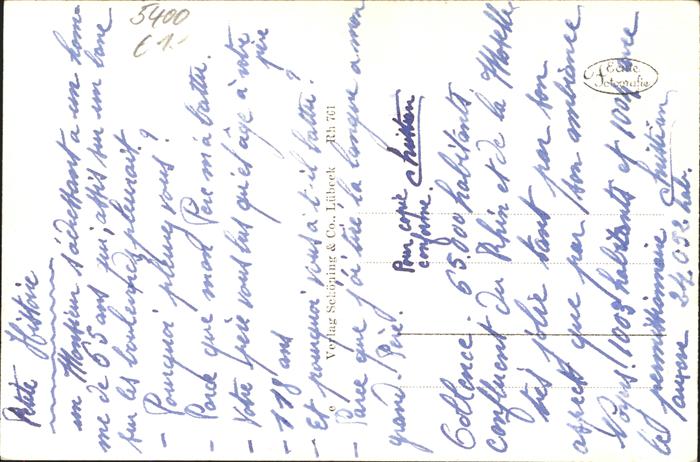 Petite Histoire
un Monsieur s'adressant à un hom-
me de 65 ans qui, assis sur un banc
sur les boulevards pleurait
- Pourquoi pleurez vous?
- Parce que mon Père m'a battu.
- Votre père vous lui qu'el âge a votre
père
- 118 ans
- Et pourquoi vous a t-il battu?
- Parce que j'ai tiré la langue a mon
grand-Père.
Pour copie
conforme. Christian
Coblence. 65.000 habitants
confluent du Rhin et de la Moselle
très jolie tant par son
aspect que par son ambiance
1005 habitants et 100
le permissionnaire Christian
5400
€ 1.-
Echte
Fotografie
Verlag Schöning & Co., Lübeck Rh 761